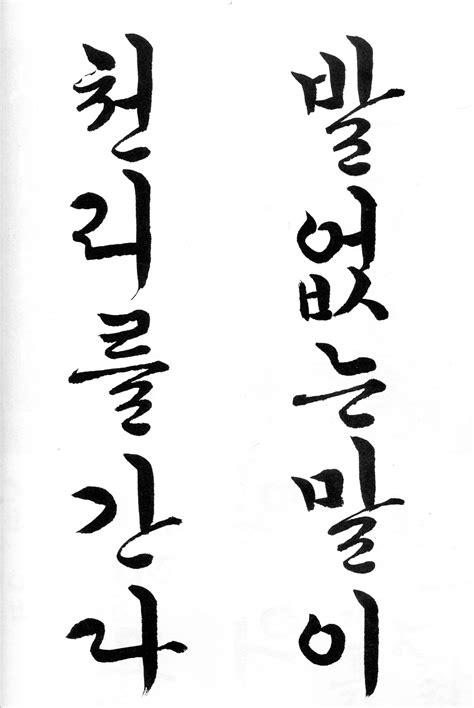 발없는말이
천리를간다